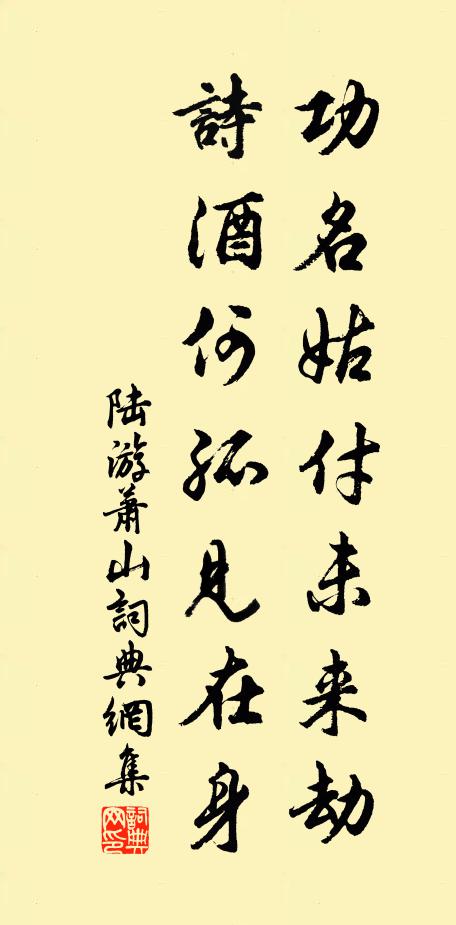 功名姑付未来劫
詩酒何孤見在身
陆游萧山詞典網集
詞典网印